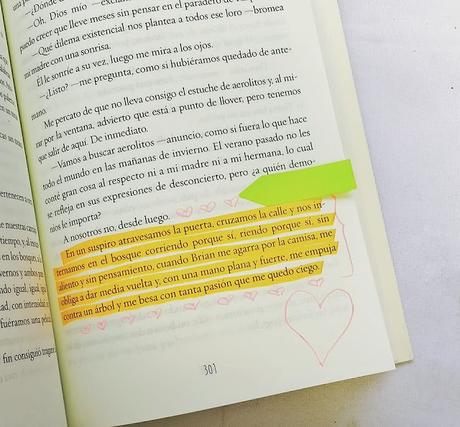 —¿Dónde
—Oh, Dios mío
puedo creer que lleve meses sin pensar en el paradero de
—Qué dilema existencial nos plantea a todos ese loro —bromea
mi madre con una sonrisa.
Él le sonríe a su vez, luego me mira a los ojos.
—¿Listo? —me pregunta, como si hubiéramos quedado de ante-
mano.
Me percato de que no lleva consigo el estuche de aerolitos y, al mi-
rar por la ventana, advierto que está a punto de llover, pero tenemos
que salir de aquí. De inmediato.
—Vamos a buscar aerolitos —anuncio, como si fuera lo que hace
todo el mundo en las mañanas de invierno. El verano pasado no les
conté gran cosa al respecto ni a mi madre ni a mi hermana, lo cual
se refleja en sus expresiones de desconcierto, pero ¿a quién demo-
nios le importa?
A nosotros no, desde luego.
En un suspiro atravesamos la puerta, cruzamos la calle y nos in-
ternamos en el bosque corriendo porque sí, riendo porque sí, sin
aliento y sin pensamiento, cuando Brian me agarra por la camisa, me
obliga a dar media vuelta y, con una mano plana y fuerte, me empuja
contra un árbol y me besa con tanta pasión que me quedo ciego.
301